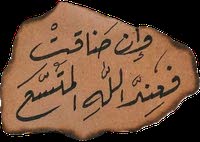 وإن ضاقت
فعند الله المتسع